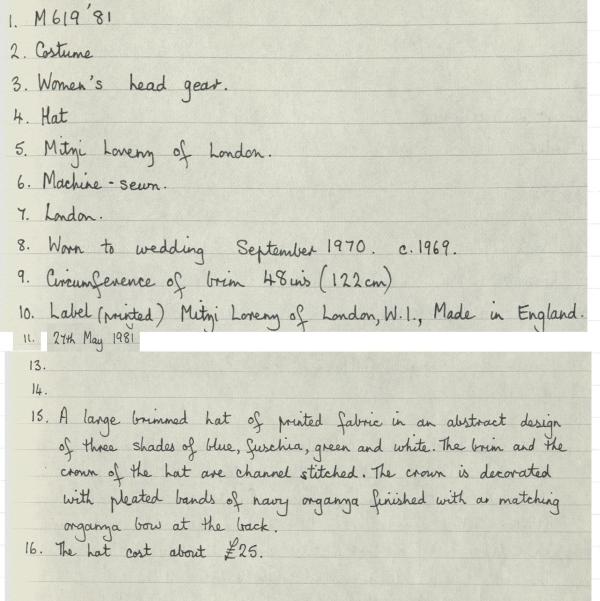 1. M619'81
2. Costume
3. Women's head gear.
4. Hat
5. Mitzi Loveny of London.
6. Machine - sewn.
7. London.
8. Worn to wedding September 1970. c.1969.
9. Circumference of brim 48ins (122cm)
10. Label (printed) Mitzi Loreny of London, W.1., Made in England.
11. 27th May 1981
13.
14.
15. A large brimmed hat of printed fabric in an abstract design
of three shades of blue, fuschia, green and white. The brim and the
crown of the hat are channel stitched. The crown is decorated
with pleated bands of navy organza finished with a matching
organza bow at the back.
16. The hat cost about £25.